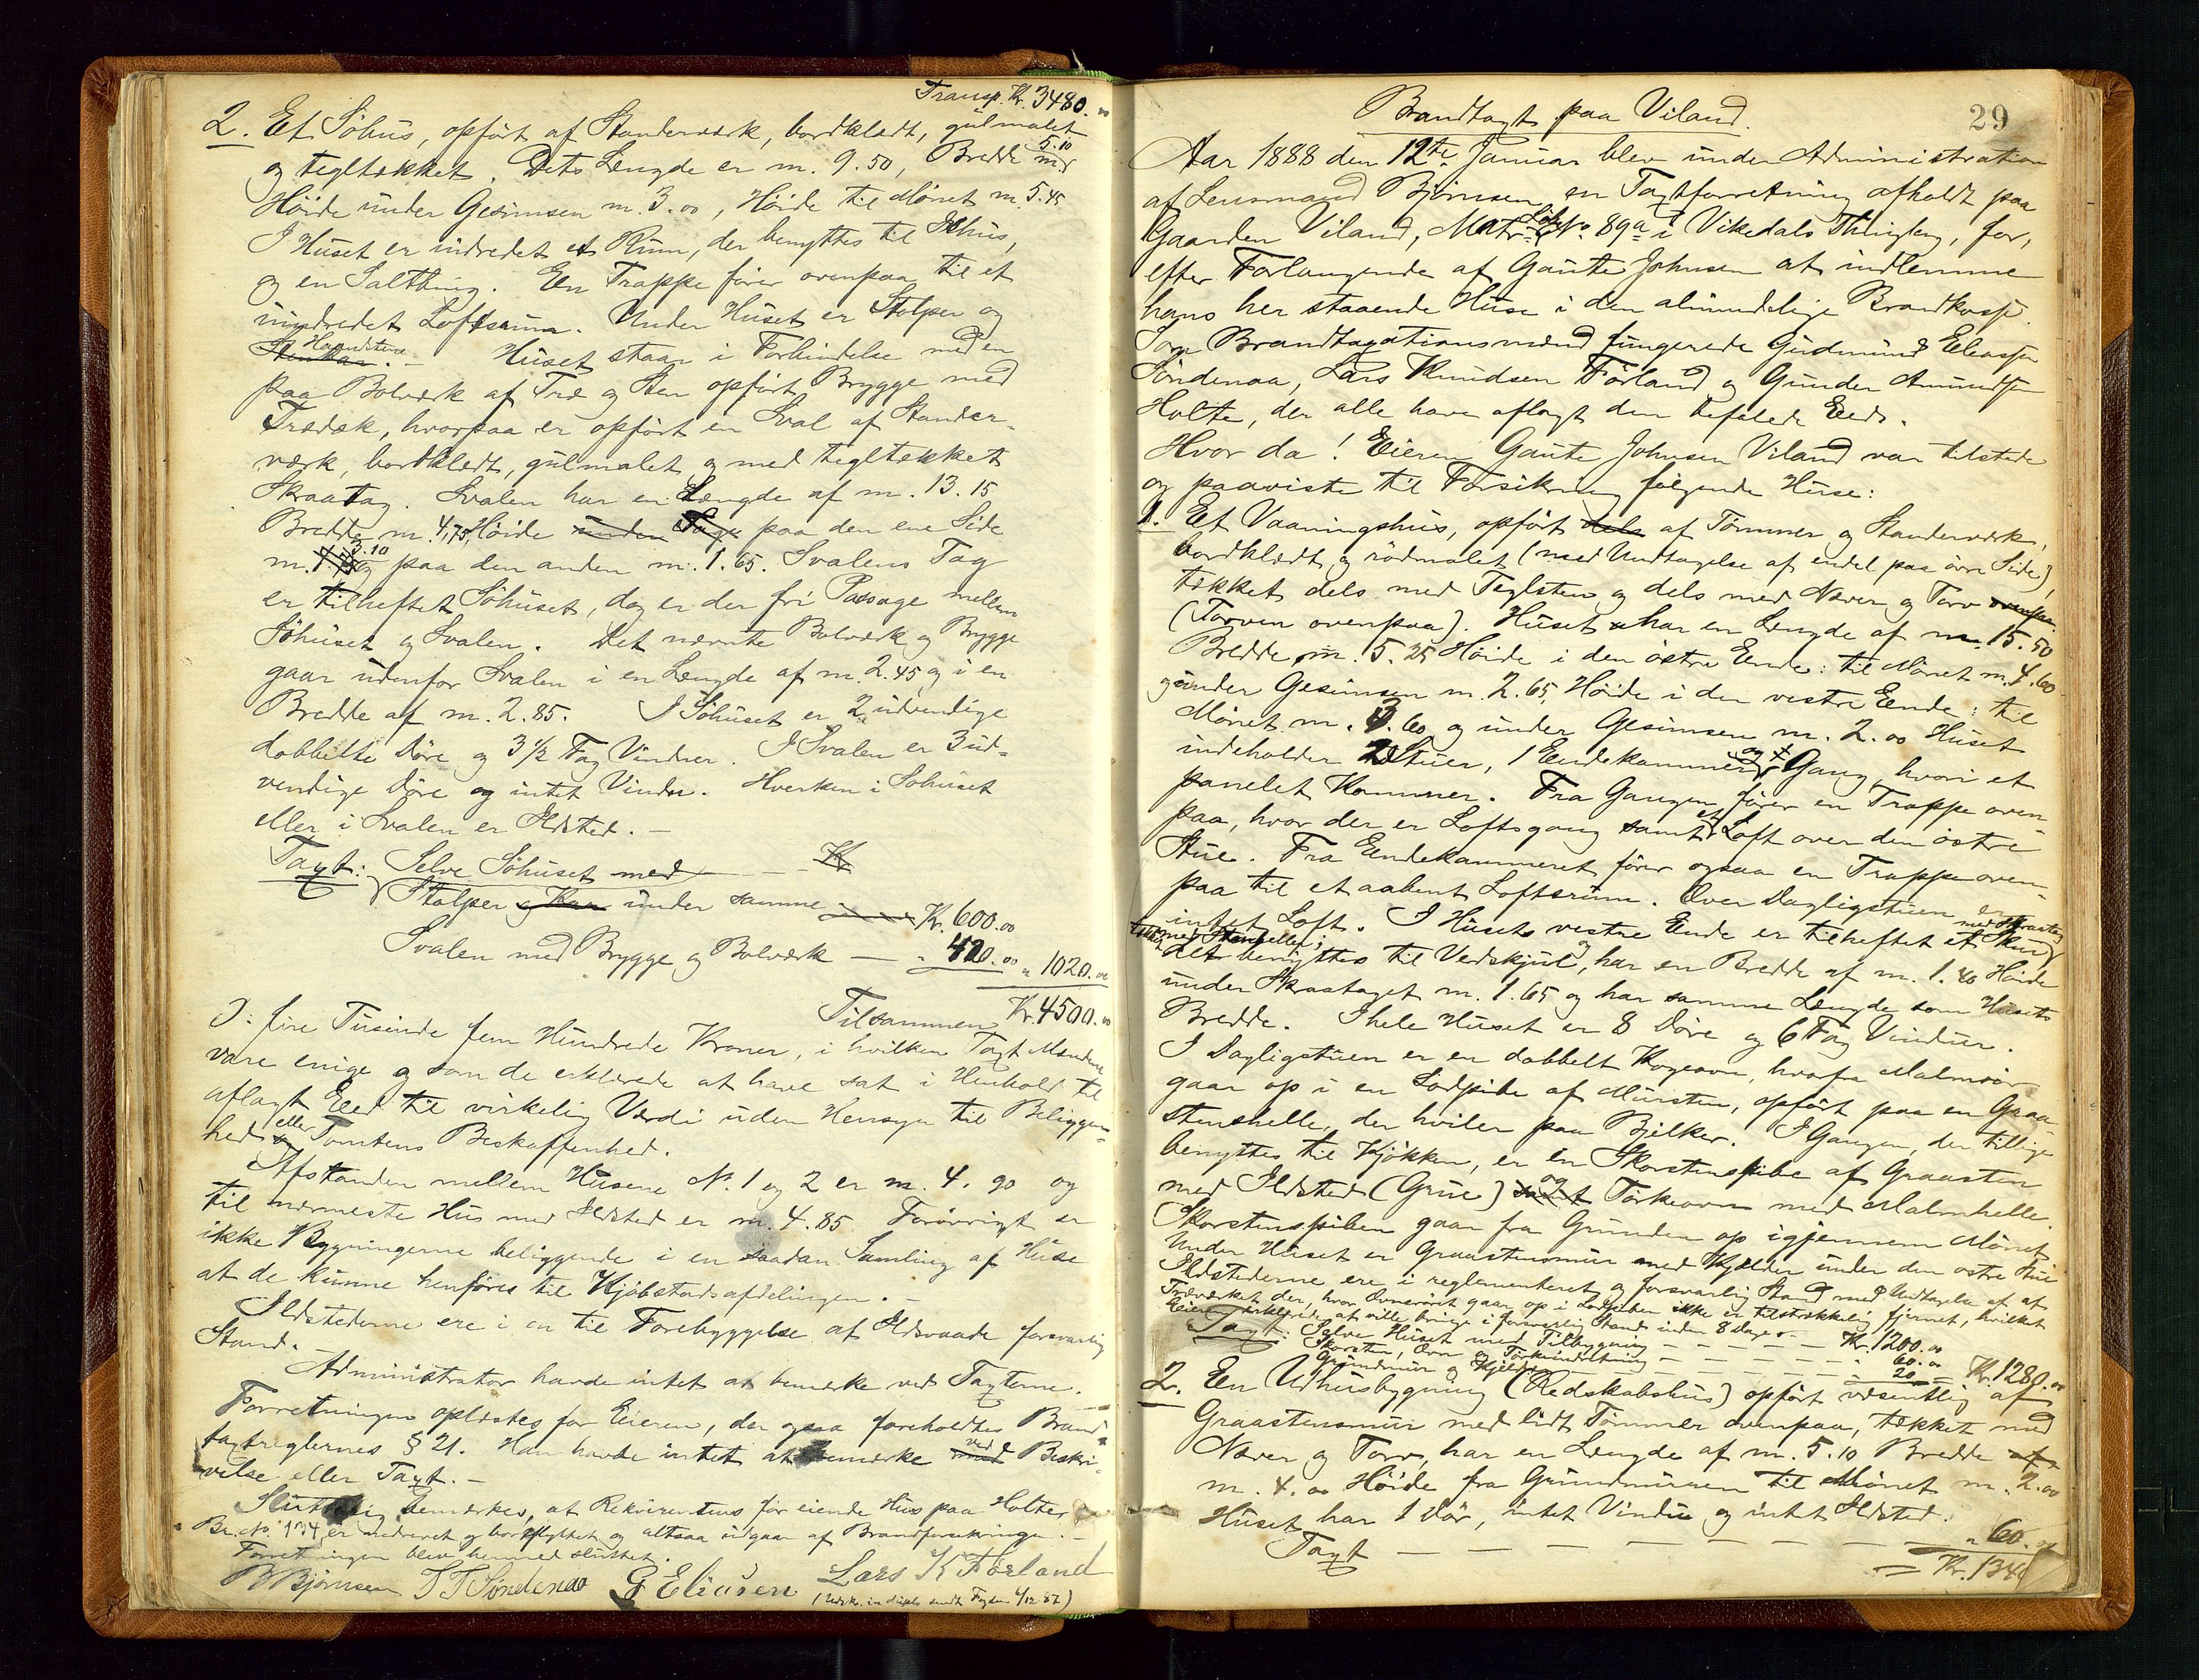 Transp. Kr. 3480.00
2. Et Söhus, opfört af Standerværk, bordklædt, gulmalet
og tegltækket. Dets Længde er m. 9.50, Bredde m. 5.10
Höide under Gesimsen m. 3.00, Höide til Mönet m. 5.45
I Huset er indredet et Rum, der benyttes til Ishus,
og en Salthing. En Trappe förer ovenpaa til et
indredet Loftsrum. Under Huset er Stolper og
Haandstene. – Huset staar i Forbindelse med en
paa Bolværk af Træ og Sten opfört Brygge med
Trædæk, hvorpaa er opfört en Sval af Stander-
værk, bordklædt, gulmalet og med tegltækket
Skraatag. Svalen har en Længde af m. 13.15
Bredde m. 4,75, Höide under Tage paa den ene Side
m. 3.10 og paa den anden m. 1.65. Svalens Tag
er tilheftet Söhuset, dog er der fri Passage mellem
Söhuset og Svalen. Det nævnte Bolværk og Brygge
gaar udenfor Svalen i en Længde af m. 2.45 og i en
Bredde af m. 2.85. I Söhuset er 2 udvendige
dobbelte Döre og 3 1/2 Fag Vinduer. I Svalen er 3 ud-
vendige Döre og intet Vindu. Hverken i Söhuset
eller i Svalen er Ildsted. –
Taxt: Selve Söhuset med – – – Kr
Stolper og Kar under samme – – Kr. 600.00
Svalen med Brygge og Bolværk – " 420.00 " 1020.00
Tilsammen Kr. 4500.00
ɔ: fire Tusinde fem Hundrede Kroner, i hvilken Taxt Mændene
vare enige og som de erklærede at have sat i Henhold til
aflagt Eed til virkelig Værdi uden Hensyn til Beliggen-
hed eller Tomtens Beskaffenhed.
Afstanden mellem Husene No. 1 og 2 er m. 4.90 og
til nærmeste Hus med Ildsted er m. 4.85. Forövrigt er
ikke Bygningerne beliggende i en saadan Samling af Huse
at de kunne henföres til Kjöbstadsafdelingen. –
Ildstederne ere i en til Forebyggelse af Ildsvaade forsvarlig
Stand. –
Administrator havde intet at bemærke ved Taxterne.
Forretningen oplæstes for Eieren, der ogsaa foreholdtes Brand-
taxtreglernes § 21. Han havde intet at bemærke ved Beskri-
velse eller Taxt. –
Sluttelig bemærkes, at Rekvirentens för eiende Hus paa Holte
Br. No. 174 er nedrevet og bortflyttet og altsaa udgaar af Brandforsikringen. –
Forretningen blev hermed sluttet.
B Björnsen T T Söndenaa G Eliasen Lars K Förland
29
Brandtaxt paa Viland.
Aar 1888 den 12te Januar blev under Administration
af Lensmand Björnsen en Taxtforretning afholdt paa
Gaarden Viland, Matr. Löbe No. 89a i Vikedals Thinglag, for,
efter Forlangende af Gaute Johnsen at indlemme
hans her staaende Huse i den almindelige Brandkasse.
Som Brandtaxationsmænd fungerede Gudmund Eliassen
Söndenaa, Lars Knudsen Förland og Gunder Amundsen
Holte, der alle have aflagt den befalede Eed.
Hvor da! Eieren Gaute Johnsen Viland var tilstede
og paaviste til Forsikring fölgende Huse:
1. Et Vaaningshus, opfört dels af Tömmer og Standerværk,
bordklædt og rödmalet (med Undtagelse af endel paa övre Side),
tækket dels med Teglsten og dels med Næver og Torv ovenpaa
(Torven ovenpaa). Huset har en Længde af m. 15.50
Bredde m. 5.25 Höide i den östre Ende: til Mönet m. 4.60
og under Gesimsen m. 2.65, Höide i den vestre Ende: til
Mönet m. 3.60 og under Gesimsen m. 2.00 Huset
indeholder 2 Stuer, 1 Endekammer og Gang, hvori et
panelet Kammer. Fra Gangen förer en Trappe oven-
paa, hvor der er Loftsgang samt et Loft over den östre
Stue. Fra Endekammeret förer ogsaa en Trappe oven-
paa til et aabent Loftsrum. Over Dagligstuen er
intet Loft. I Husets vestre Ende er tilheftet et Skur med Skraatag
tækket med Stenheller;
det benyttes til Vedskjul og har en Bredde af m. 1.40 Höide
under Skraataget m. 1.65 og har samme Længde som Husets
Bredde. I hele Huset er 8 Döre og 6 Fag Vinduer.
I Dagligstuen er en dobbelt Kogeovn, hvorfra Malmrör
gaar op i en Lodpibe af Mursten, opfört paa en Graa-
stenshelle, der hviler paa Bjelker. I Gangen, der tillige
benyttes til Kjökken, er en Skorstenspibe af Graasten
med Ildsted (Grue) og Törkeovn med Malmhelle.
Skorstenspiben gaar fra Grunden op igjennem Mönet.
Under Huset er Graastensmur med Kjelder under den östre Stue
Ildstederne ere i reglementeret og forsvarlig Stand med Undtagelse af at
Træværket der, hvor Ovnsröret gaar op i Lodpiben ikke er tilstrækkelig fjernet, hvilket
Eieren erklærede at ville bringe i forsvarlig Stand inden 8 Dage. –
Taxt: Selve Huset med Tilbygning – – – – – Kr. 1200.00
Skorsten, Ovn og Törkeindretning – – – – – " 60.00
Grundmur og Kjelder – – – – – – " 20.00 = Kr. 1280.00
2. En Udhusbygning (Redskabshus) opfört væsentlig af
Graastensmur med lidt Tömmer ovenpaa, tækket med
Næver og Torv, har en Længde af m. 5.10 Bredde
m. 4.00 Höide fra Grundmuren til Mönet m. 2.00
Huset har 1 Dör, intet Vindu og intet Ildsted.
Taxt – – – – – – – – " 60.00
= Kr. 1340